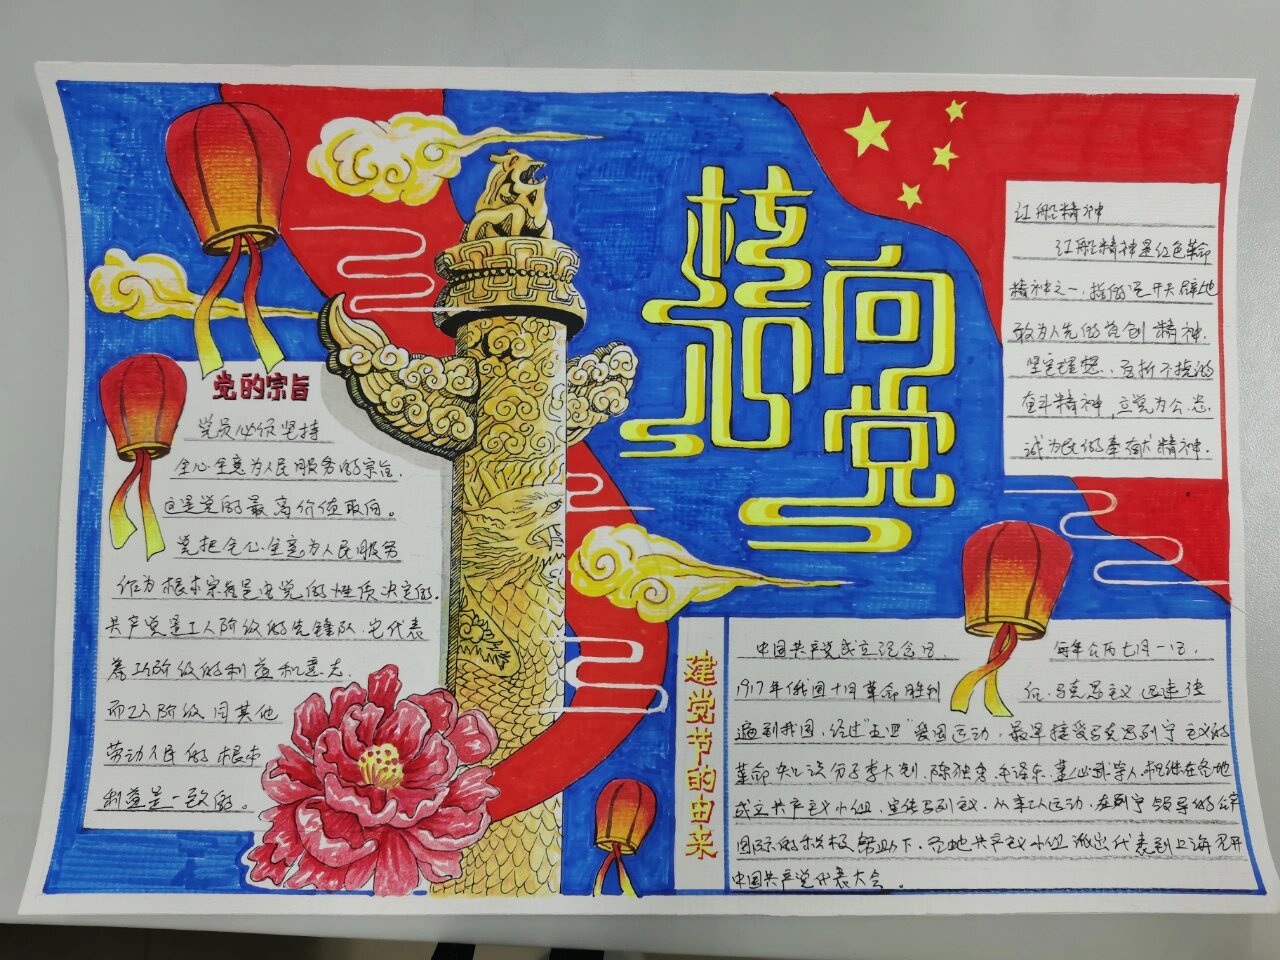 核心
向党
党的宗旨
党员必须坚持
全心全意为人民服务的宗旨.
这是党的最高价值取向。
党把全心全意为人民服务
作为根本宗旨是由党的性质决定的.
共产党是工人阶级的先锋队.它代表
着工人阶级的利益和意志.
而工人阶级同其他
劳动人民的根本
利益是一致的。
红船精神
红船精神是红色革命
精神之一,指的是开天辟地
敢为人先的首创精神.
坚定理想、百折不挠的
奋斗精神,立党为公.忠
诚为民的奉献精神.
建党节的由来
中国共产党成立纪念日. 每年公历七月一日.
1917年俄国十月革命胜利 后.马克思主义迅速传
遍到我国,经过"五四"爱国运动,最早接受马克思列宁主义的
革命知识分子李大钊、陈独秀、毛泽东、董必武等人相继在各地
成立共产主义小组.宣传马列主义.从事工人运动.在列宁领导的共产
国际的积极帮助下,各地共产主义小组派出代表到上海召开
中国共产党代表大会。